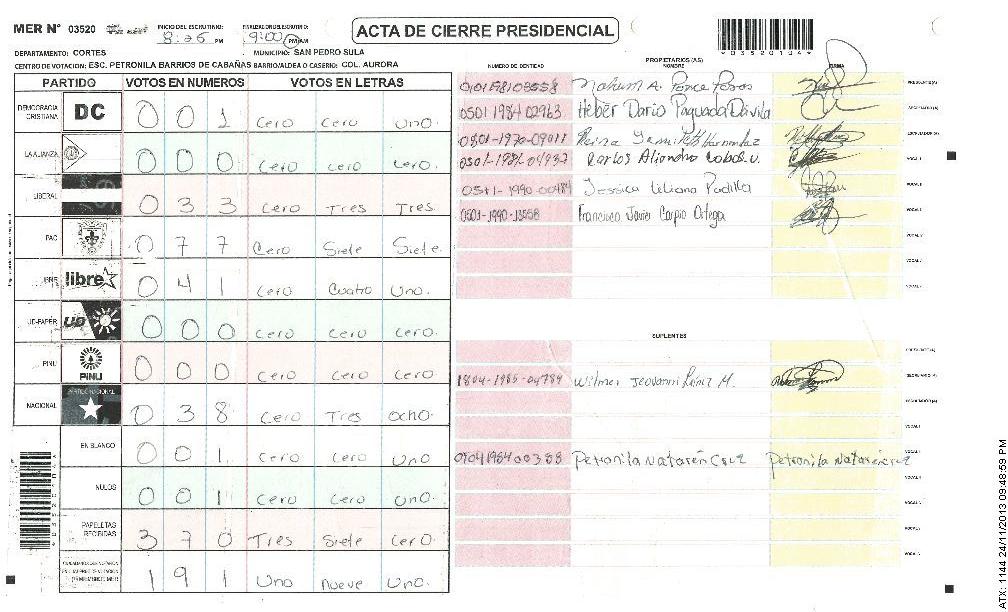 MER Nº 03520
INICIO DEL ESCRUTINIO: 8:26 PM
FINALIZACION ESCRUTINIO: 9:00 PM AM
ACTA DE CIERRE PRESIDENCIAL
DEPARTAMENTO: CORTES
MUNICIPIO: SAN PEDRO SULA
CENTRO DE VOTACION: ESC. PETRONILA BARRIOS DE CABAÑAS BARRIO/ALDEA O CASERIO: COL. AURORA
PARTIDO VOTOS EN NUMEROS VOTOS EN LETRAS
DEMOCRACIA CRISTIANA DC 0 0 1 Cero Cero Uno.
LA ALIANZA 0 0 0 Cero Cero Cero.
LIBERAL 0 3 3 Cero Tres Tres.
PAC 0 7 7 Cero Siete Siete.
LIBRE libre 0 4 1 Cero Cuatro Uno.
UD-FAPER UD 0 0 0 Cero Cero Cero.
PINU PINU 0 0 0 Cero Cero Cero.
NACIONAL PARTIDO NACIONAL 0 3 8 Cero Tres Ocho.
EN BLANCO 0 0 1 Cero Cero Uno
NULOS 0 0 1 Cero Cero Uno.
PAPELETAS RECIBIDAS 3 7 0 Tres Siete Cero.
1 9 1 Uno Nueve Uno.
PROPIETARIOS (AS)
NUMERO DE IDENTIDAD NOMBRE FIRMA
Nahum A. Ponce PRESIDENTE(A)
0501 1984 02963 Héber Dario Paguada Dávila SECRETARIO(A)
0801-1970-09011 Reina ESCRUTADOR(A)
0501-1986-04937 Carlos VOCAL 1
0511-1990-00484 Jessica Liliana Padilla VOCAL 2
0501-1990-13558 Francisco Javier Carpio Ortega VOCAL 3
SUPLENTES
PRESIDENTE(A)
1804-1985-04789 Wilmer Jeovanni M. SECRETARIO(A)
ESCRUTADOR(A)
Petronila Natarén Cruz Petronila Natarén Cruz
03520104
ATX: 1144 24/11/2013 09:48:59 PM